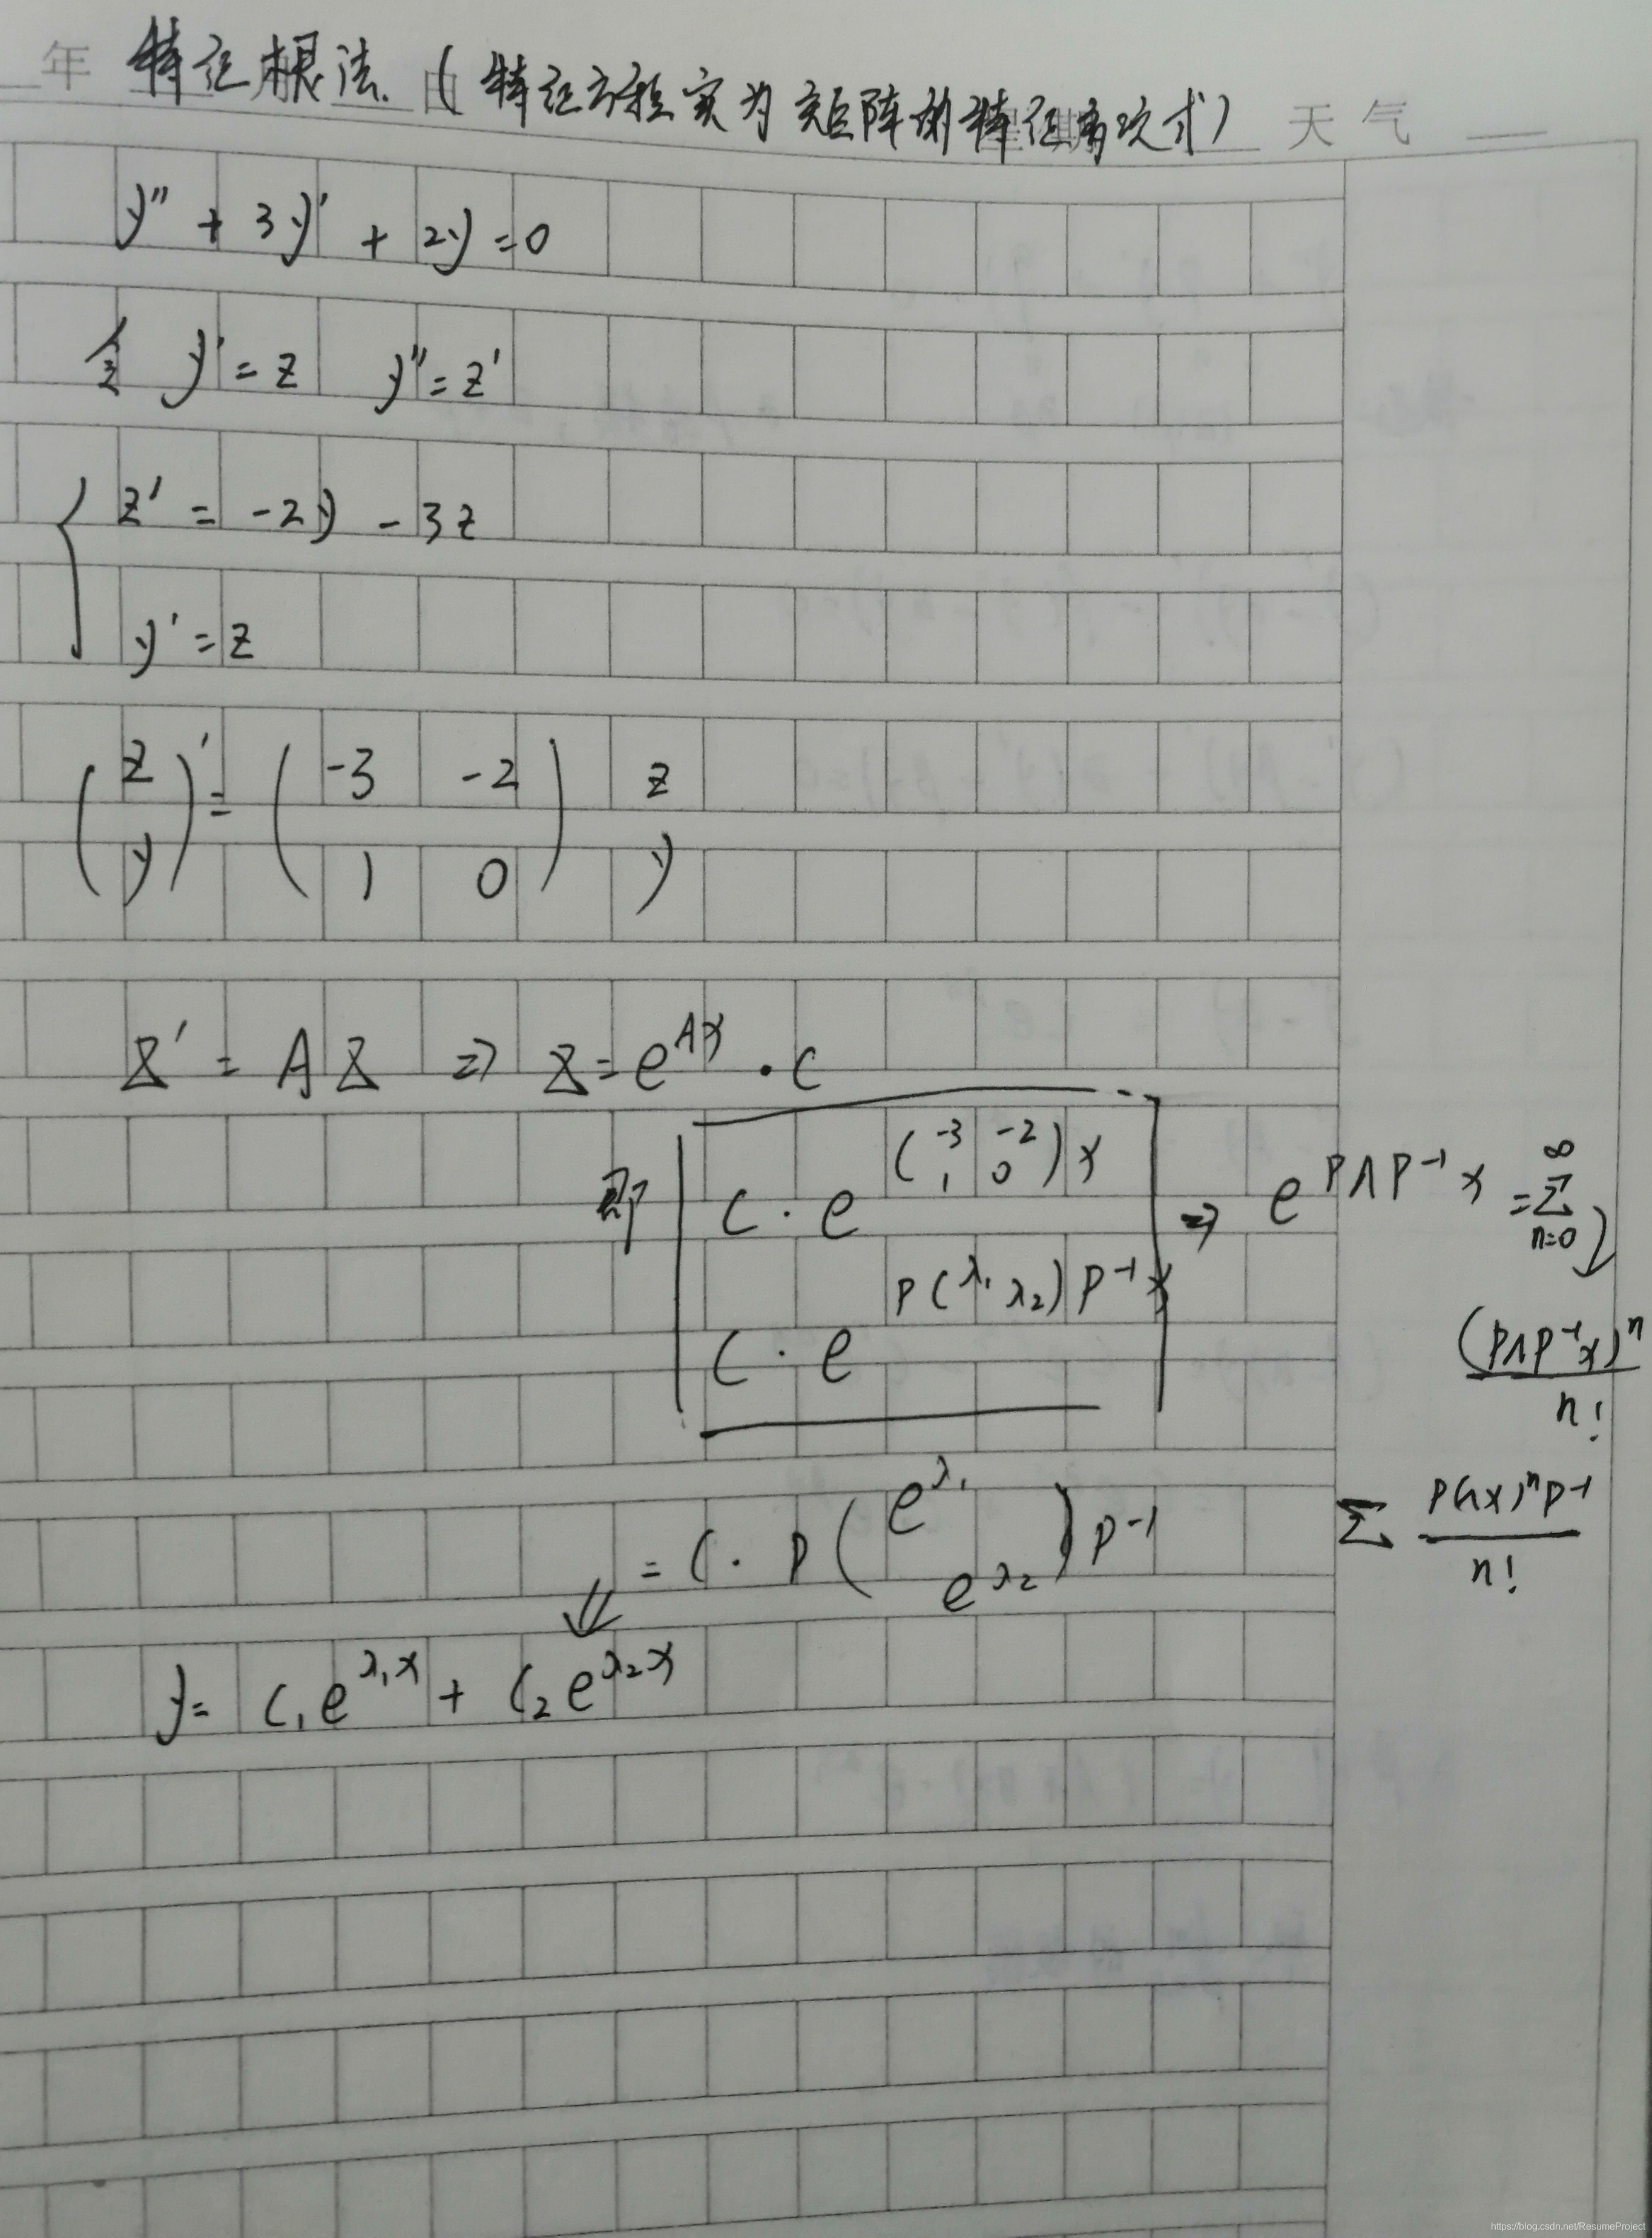 年 特征根法. (特征方程实为矩阵的特征高次式) 天气
y'' + 3y' + 2y = 0
令 y' = z y'' = z'
{ z' = -2y - 3z
y' = z
( z y )' = ( -3 -2 1 0 ) z y
Z' = A Z ⇒ Z = e^{Ax} · C
即 C · e^{( -3 -2 1 0 ) x} ⇒ e^{PΛP^{-1}x} = ∑_{n=0}^{∞}
C · e^{P(λ₁ λ₂)P^{-1}x} (PΛP^{-1}x)^n / n!
= C · P ( e^{λ₁} e^{λ₂} ) P^{-1} ∑ P(Λx)^n P^{-1} / n!
⇓
y = C₁e^{λ₁x} + C₂e^{λ₂x}
https://blog.csdn.net/ResumeProject